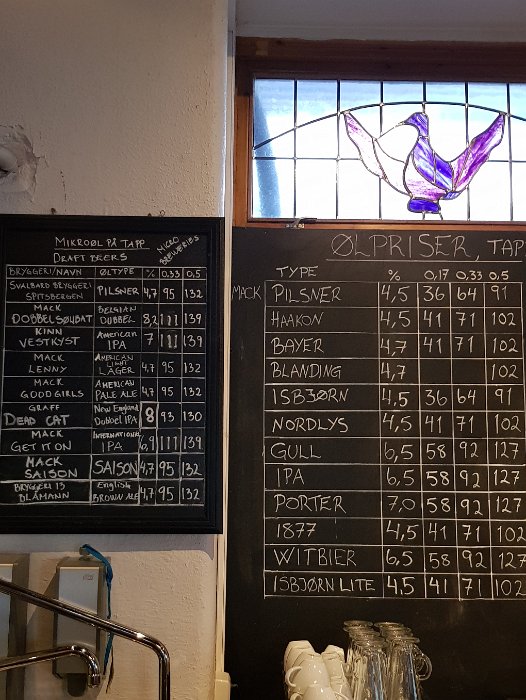 MIKROØL PÅ TAPP
MICRO BREWERIES
DRAFT BEERS
BRYGGERI/NAVN ØLTYPE % 0,33 0,5
SVALBARD BRYGGERI
SPITSBERGEN PILSNER 4,7 95 132
MACK BELGIAN
DOBBELSØUBAT DUBBEL 8,2 111 139
KINN American
VESTKYST IPA 7 111 139
MACK AMERICAN LIGHT
LENNY LAGER 4,7 95 132
MACK AMERICAN
GOOD GIRLS PALE ALE 4,7 95 132
GRAFF New England
DEAD CAT Dubbel IPA 8 93 130
MACK INTERNATIONAL
GET IT ON IPA 6,9 111 139
MACK
SAISON SAISON 4,7 95 132
BRYGGERI 13 English
BLÅMANN BROWN ALE 4,7 95 132
ØLPRISER, TAP
TYPE % 0,17 0,33 0,5
MACK PILSNER 4,5 36 64 91
HAAKON 4,5 41 71 102
BAYER 4,7 41 71 102
BLANDING 4,7 102
ISBJØRN 4,5 36 64 91
NORDLYS 4,5 41 71 102
GULL 6,5 58 92 127
IPA 6,5 58 92 127
PORTER 7,0 58 92 127
1877 4,5 41 71 102
WITBIER 6,5 58 92 127
ISBJØRN LITE 4,5 41 71 102